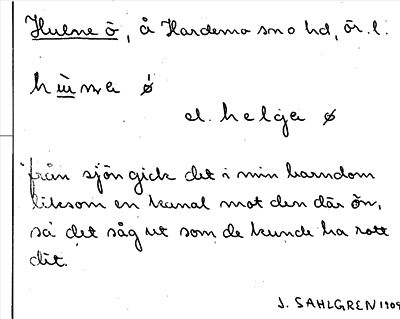 Hulne ö, å Hardemo sn o hd, ör. l.
ø
el. helga ø
från sjön gick det i min barndom
liksom en kanal mot den där ön,
så det såg ut som de kunde ha rott
dit.
J. SAHLGREN 1909